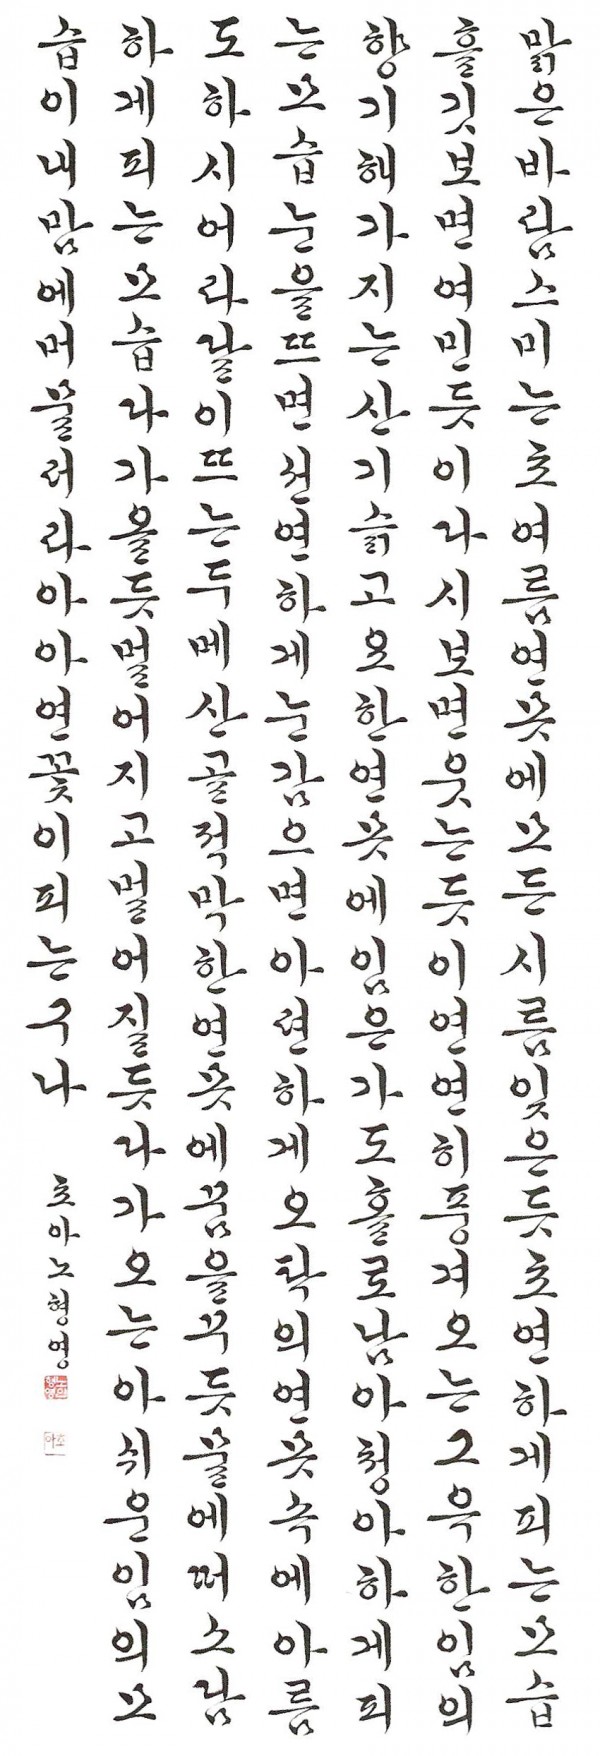 맑은바람스미는초여름연못에모든시름잊은듯초연하게피는모습
흘깃보면여민듯이다시보면웃는듯이연연히풍겨오는그윽한임의
향기해가지는산기슭고요한연못에임은가도홀로남아청아하게피
는모습눈을뜨면선연하게눈감으면아련하게오탁의연못속에아름
도하시어라달이뜨는두메산골적막한연못에꿈을꾸듯물에떠소담
하게피는모습다가올듯멀어지고멀어질듯다가오는아쉬운임의모
습이내맘에머물러라아아연꽃이피는구나
초아노형영
초아